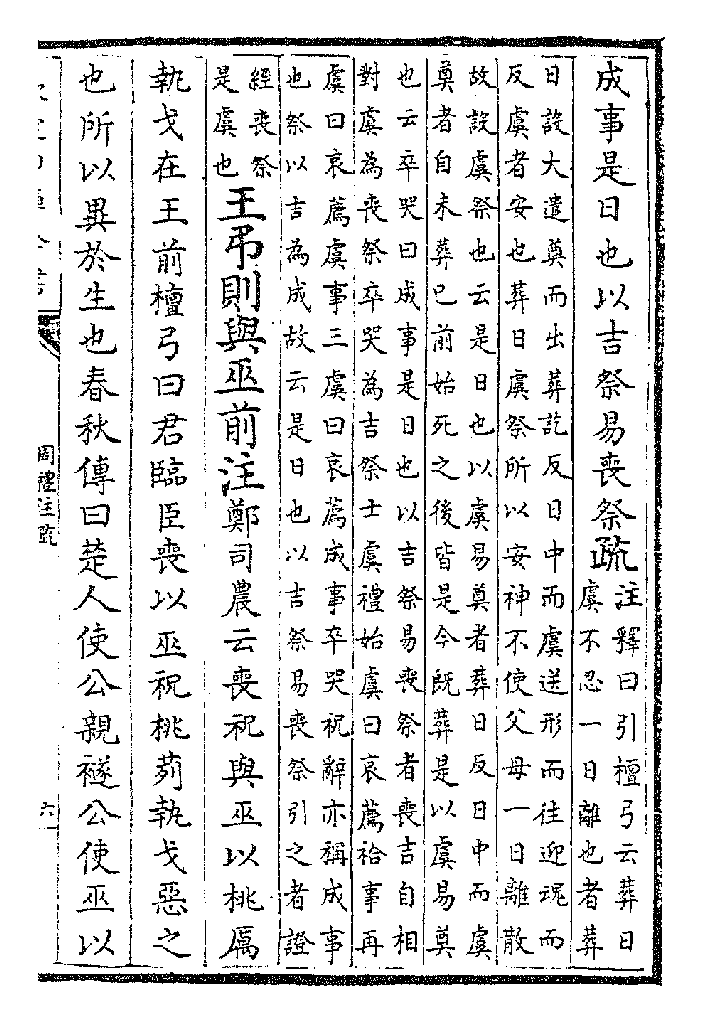 成事是日也以吉祭易喪祭疏
注釋曰引檀弓云葬日
虞不忍一日離也者葬
日設大遣奠而出葬訖反日中而虞送形而往迎魂而
反虞者安也葬日虞祭所以安神不使父母一日離散
故設虞祭也云是日也以虞易奠者葬日反日中而虞
奠者自未葬已前始死之後皆是今既葬是以虞易奠
也云卒哭曰成事是日也以吉祭易喪祭者喪吉自相
對虞為喪祭卒哭為吉祭士虞禮始虞曰哀薦祫事再
虞曰哀薦虞事三虞曰哀薦成事卒哭祝辭亦稱成事
也祭以吉為成故云是日也以吉祭易喪祭引之者證
經喪祭
是虞也
王弔則與巫前注鄭司農云喪祝與巫以桃厲
執戈在王前檀弓曰君臨臣喪以巫祝桃茢執戈惡之
也所以異於生也春秋傳曰楚人使公親襚公使巫以
周禮注疏
六